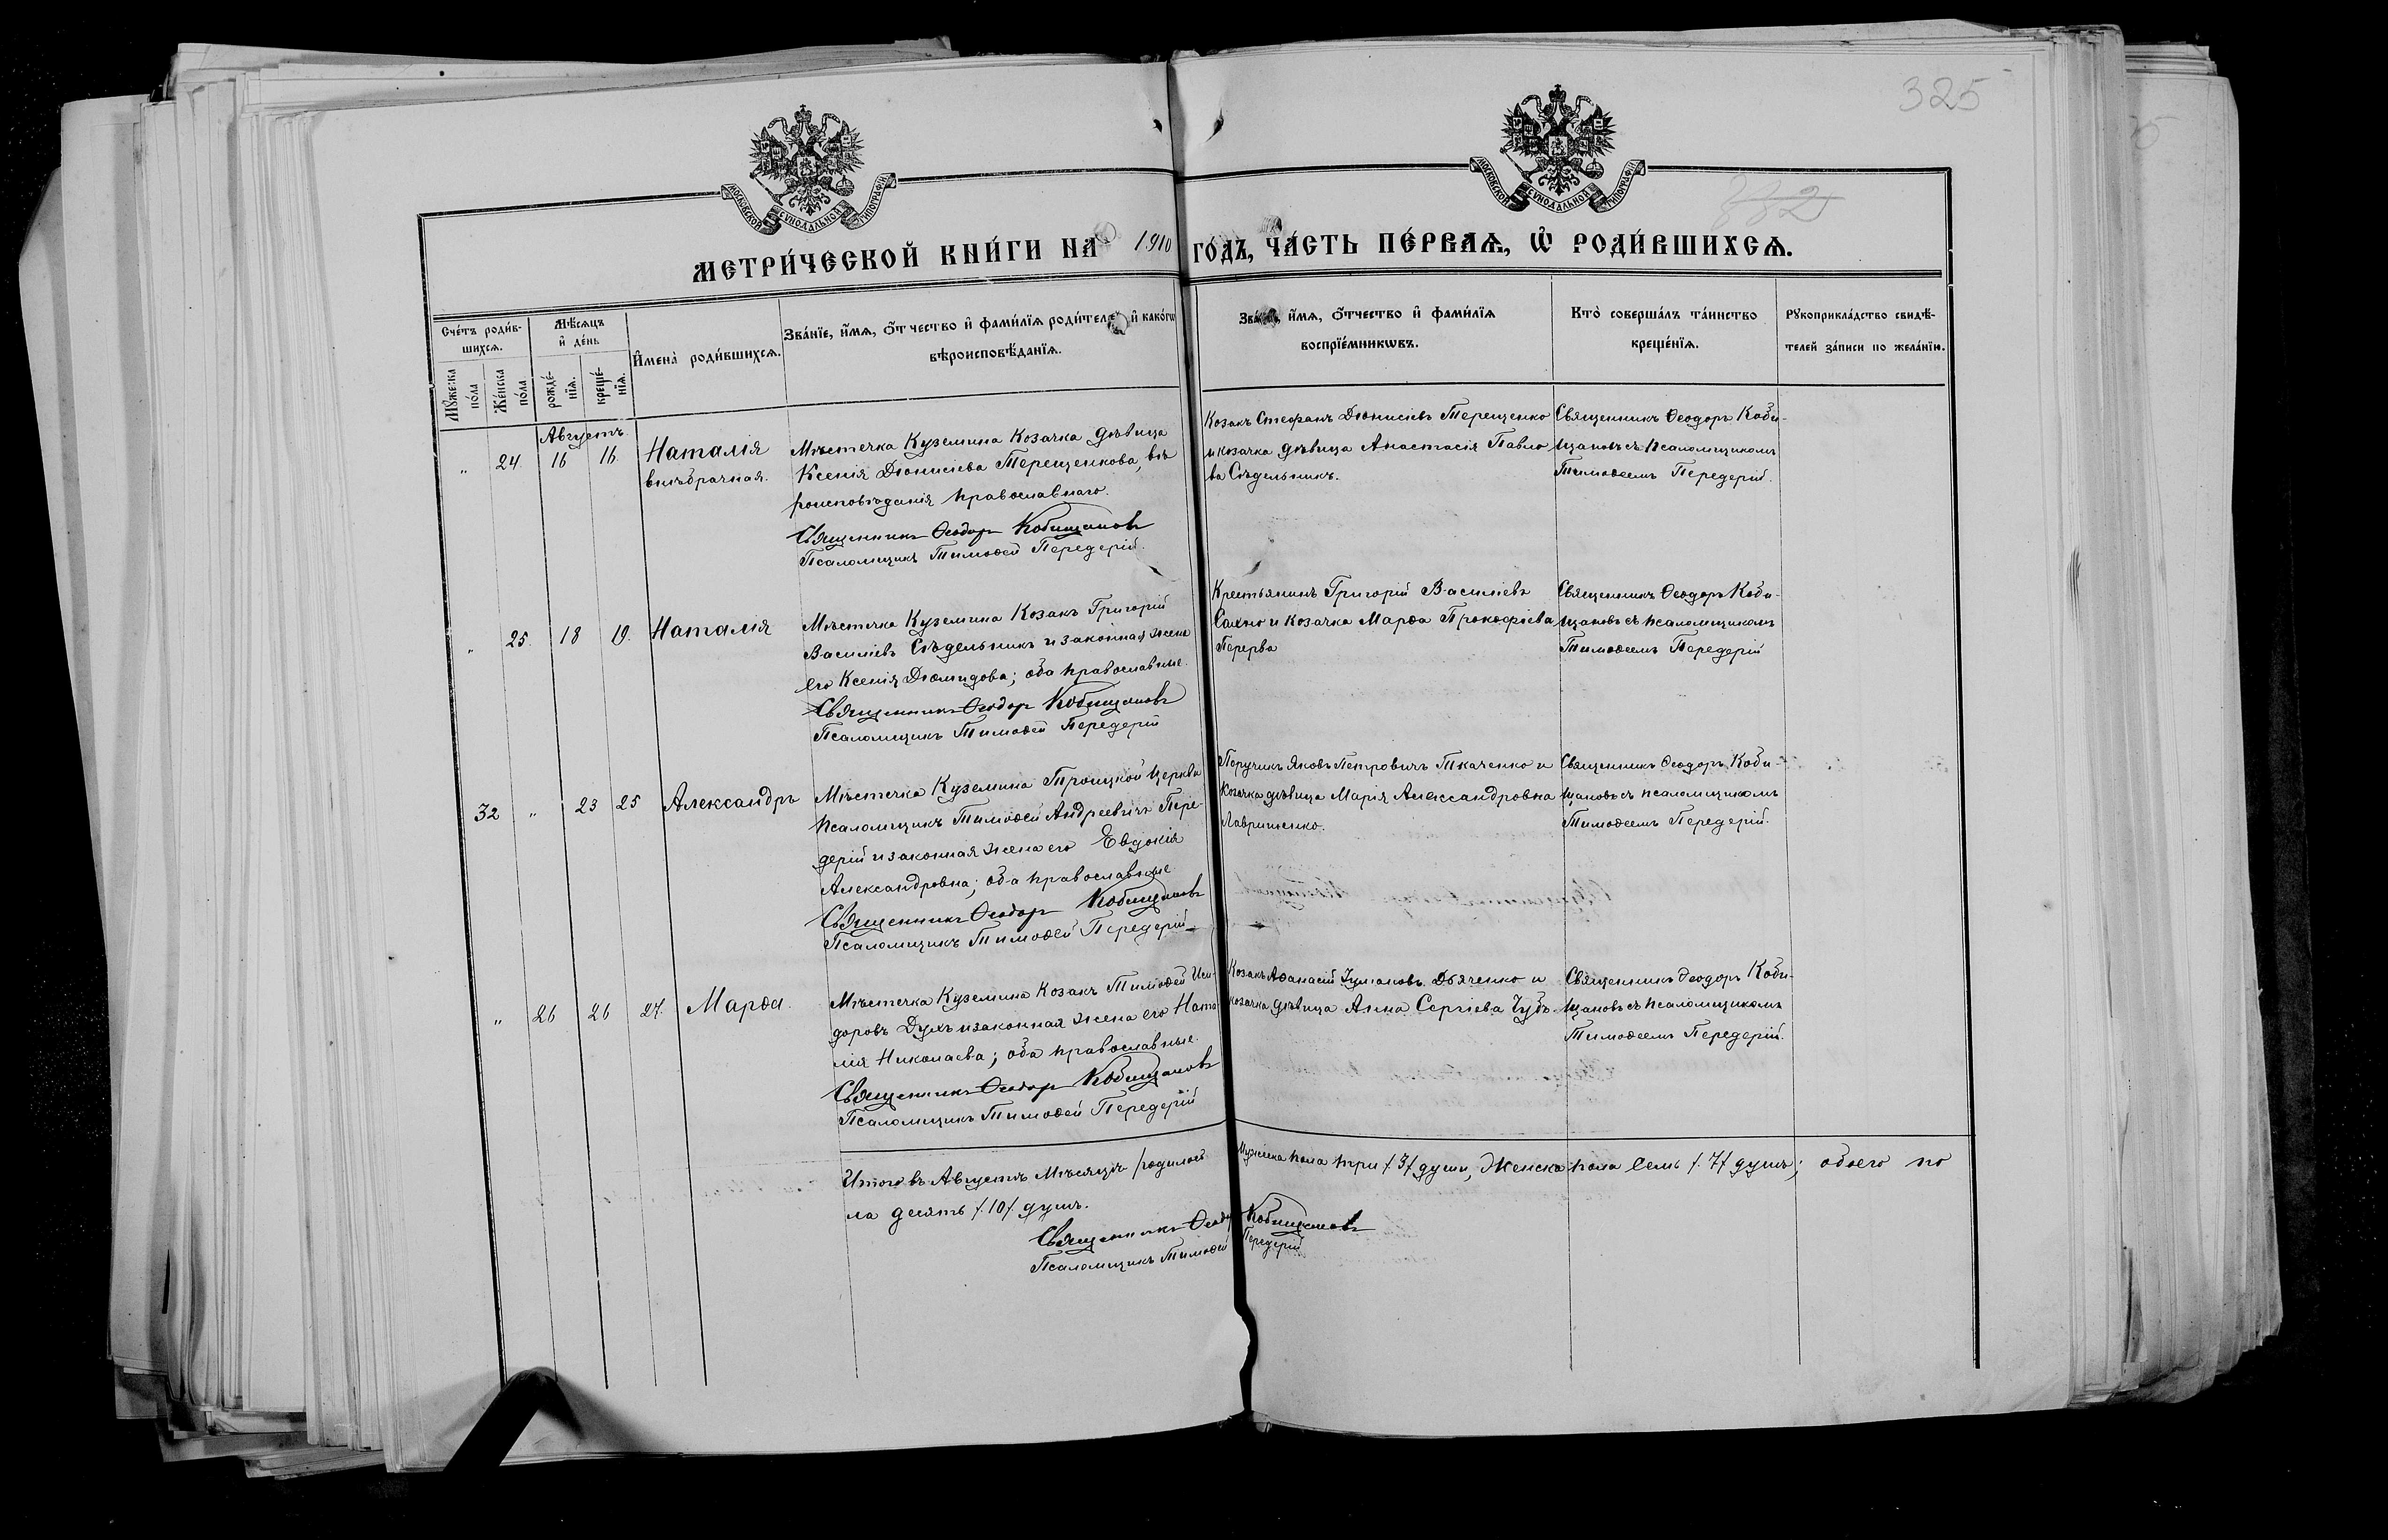 325
332
МОСКОВСКОЙ СУНОДАЛЬНОЙ ТИПОГРАФІИ
МОСКОВСКОЙ СУНОДАЛЬНОЙ ТИПОГРАФІИ
МЕТРИ́ЧЕСКОЙ КНИ́ГИ НА 1910 ГО́ДЪ, ЧА́СТЬ ПЕ́РВАѦ, Ѿ РОДИ́ВШИХСѦ.
Сче́тъ роди́в-
шихсѧ.
Мѣ́сѧцъ
и҆ де́нь
Мꙋ́жеска
по́ла
Же́нска
по́ла.
рожде́-
нїѧ.
креще́-
нїѧ.
И҆мена̀ роди́вшихсѧ.
Зва́нїе, и҆́мѧ, ѻ҆́тчество и҆ фами́лїѧ роди́телей и҆ како́гѡ
вѣроисповѣ́данїѧ.
Зва́нїе, и҆́мѧ, ѻ҆́тчество и҆ фами́лїѧ
воспрїе́мникѡвъ.
Кто̀ соверша́лъ та́инство
креще́нїѧ.
Рꙋкоприкла́дство свидѣ́-
телей за́писи по жела́нїю.
Августъ
„ 24. 16 16. Наталія
внѣбрачная.
Мѣстечка Куземина Козачка дѣвица
Ксенія Діонисіева Терещенкова, вѣ
роисповѣданія православнаго.
Священникъ Ѳеодоръ Кобищановъ
Псаломщикъ Тимоѳей Передерій.
Козакъ Стефанъ Діонисіевъ Терещенко
и козачка дѣвица Анастасія Павло
ва Сѣдельникъ.
Священникъ Ѳеодоръ Коби-
щановъ съ псаломщикомъ
Тимоѳеемъ Передерій.
„ 25. 18 19. Наталія
Мѣстечка Куземина Козакъ Григорій
Василіевъ Сѣдельникъ и законная жена
его Ксенія Діомидова; оба православные.
Священникъ Ѳеодоръ Кобищановъ
Псаломщикъ Тимоѳей Передерій
Крестьянинъ Григорій Василіевъ
Сахно и козачка Марѳа Прокофіева
Перерва
Священникъ Ѳеодоръ Коби-
щановъ съ псаломщикомъ
Тимоѳеемъ Передерій
32 „ 23 25 Александръ
Мѣстечка Куземина Троицкой церкви
псаломщикъ Тимоѳей Андреевичъ Пере-
дерій и законная жена его Евдокія
Александровна; оба православные
Священникъ Ѳеодоръ Кобищановъ
Псаломщикъ Тимоѳей Передерій
Поручикъ Яковъ Петровичъ Ткаченко и
козачка дѣвица Марія Александровна
Лавриненко.
Священникъ Ѳеодоръ Коби-
щановъ съ псаломщикомъ
Тимоѳеемъ Передерій.
„ 26 26 27. Марѳа.
Мѣстечка Куземина Козакъ Тимоѳей Иси-
доровъ Духъ и законная жена его Ната
лія Николаева; оба православные.
Священникъ Ѳеодоръ Кобищановъ
Псаломщикъ Тимоѳей Передерій
Козакъ Аѳанасій Дьяченко и
козачка дѣвица Анна Сергіева Чубъ
Священникъ Ѳеодоръ Коби-
щановъ съ псаломщикомъ
Тимоѳеемъ Передерій.
Итого въ Августѣ мѣсяцѣ родилось Мужеска пола три /.3/ души, Женска пола семь /.7/ душъ; обоего по
ла десять /.10/ душъ.
Священникъ Ѳеодоръ Кобищановъ
Псаломщикъ Тимоѳей Передерій